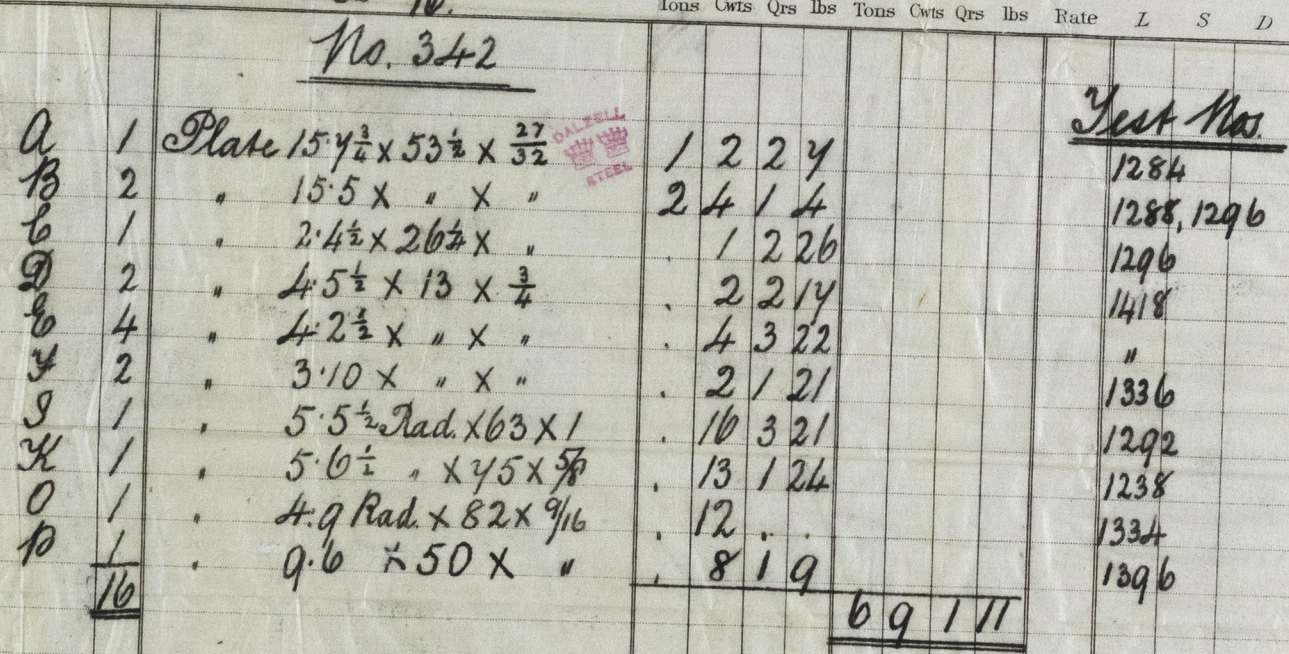 Tons Cwts Qrs lbs Tons Cwts Qrs lbs Rate L S D
No. 342
Test Nos.
A 1 Plate 15.7¾ x 53½ x 27/32 1 2 2 7 1284
DALZELL STEEL
B 2 " 15.5 x " x " 2 4 1 4 1288, 1296
C 1 " 2.4½ x 26¼ x " . 1 2 26 1296
D 2 " 4.5½ x 13 x ¾ . 2 2 17 1418
E 4 " 4.2½ x " x " . 4 3 22 "
F 2 " 3.10 x " x " . 2 1 21 1336
I 1 " 5.5½ Rad. x 63 x 1 . 16 3 21 1292
K 1 " 5.6½ " x 75 x 5/8 . 13 1 24 1238
O 1 " 4.9 Rad. x 82 x 9/16 . 12 . . 1334
P 1 " 9.6 x 50 x " . 8 1 9 1396
16 6 9 1 11